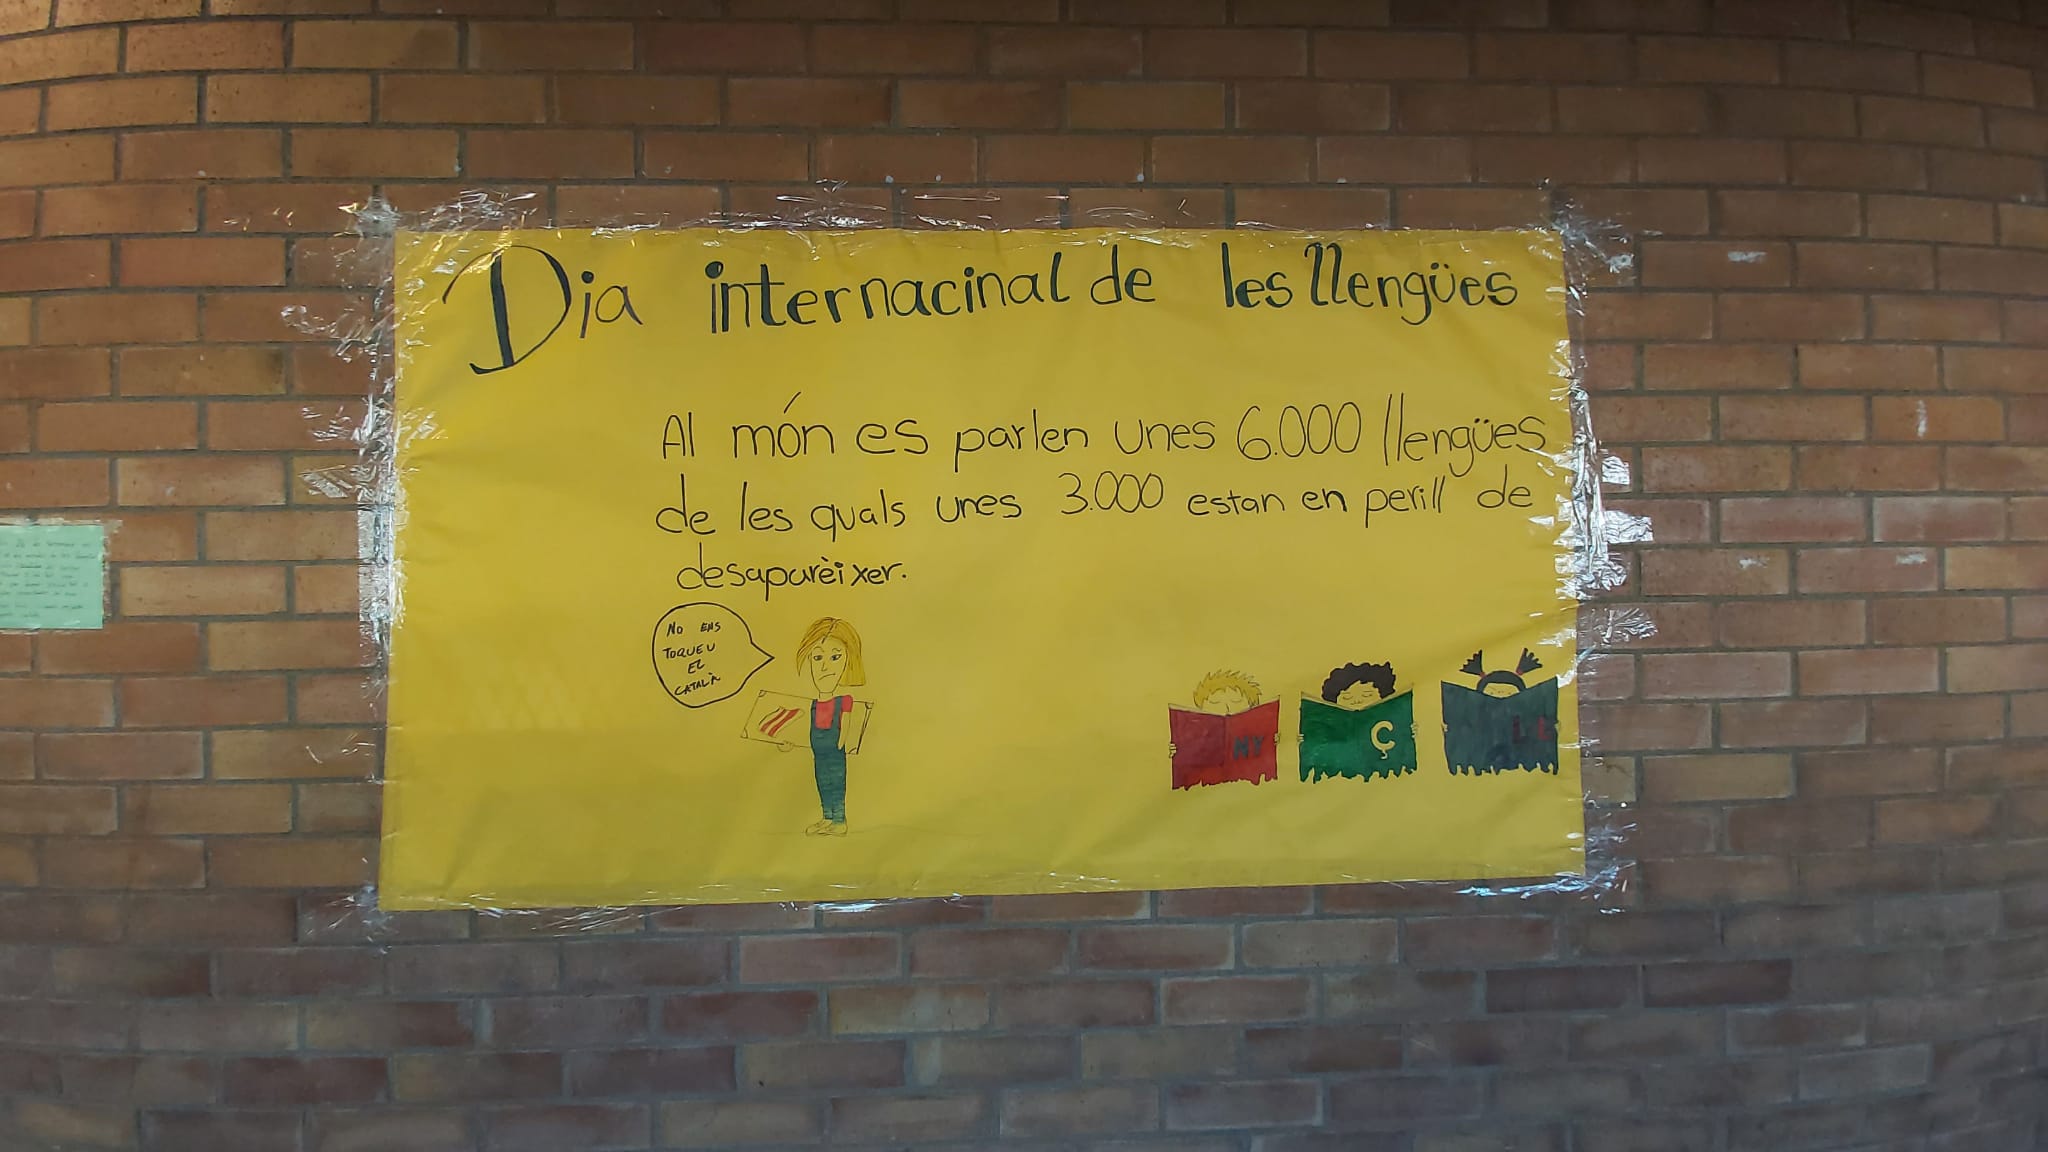 Dia internacinal de les llengües
Al món es parlen unes 6.000 llengües
de les quals unes 3.000 estan en perill de
desaparèixer.
NO ENS
TOQUEU
EL
CATALÀ
NY
Ç
LL